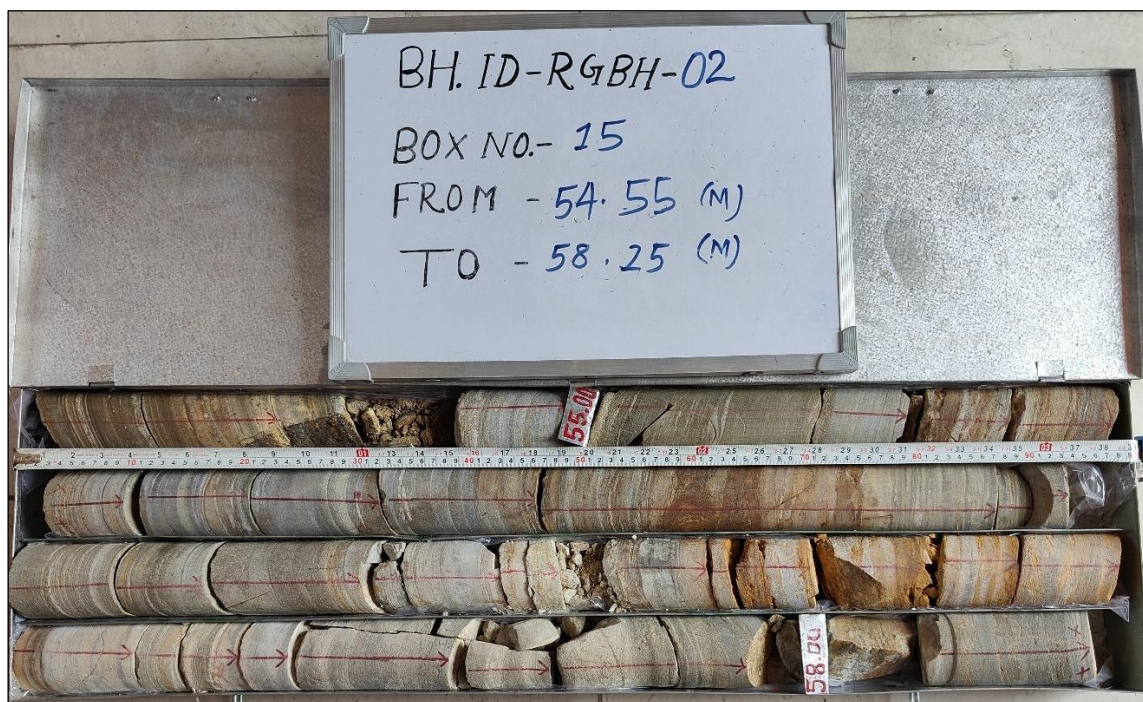 BH. ID-RGBH-02
BOX NO.- 15
FROM - 54.55 (M)
TO - 58.25 (M)
55.00
58.00